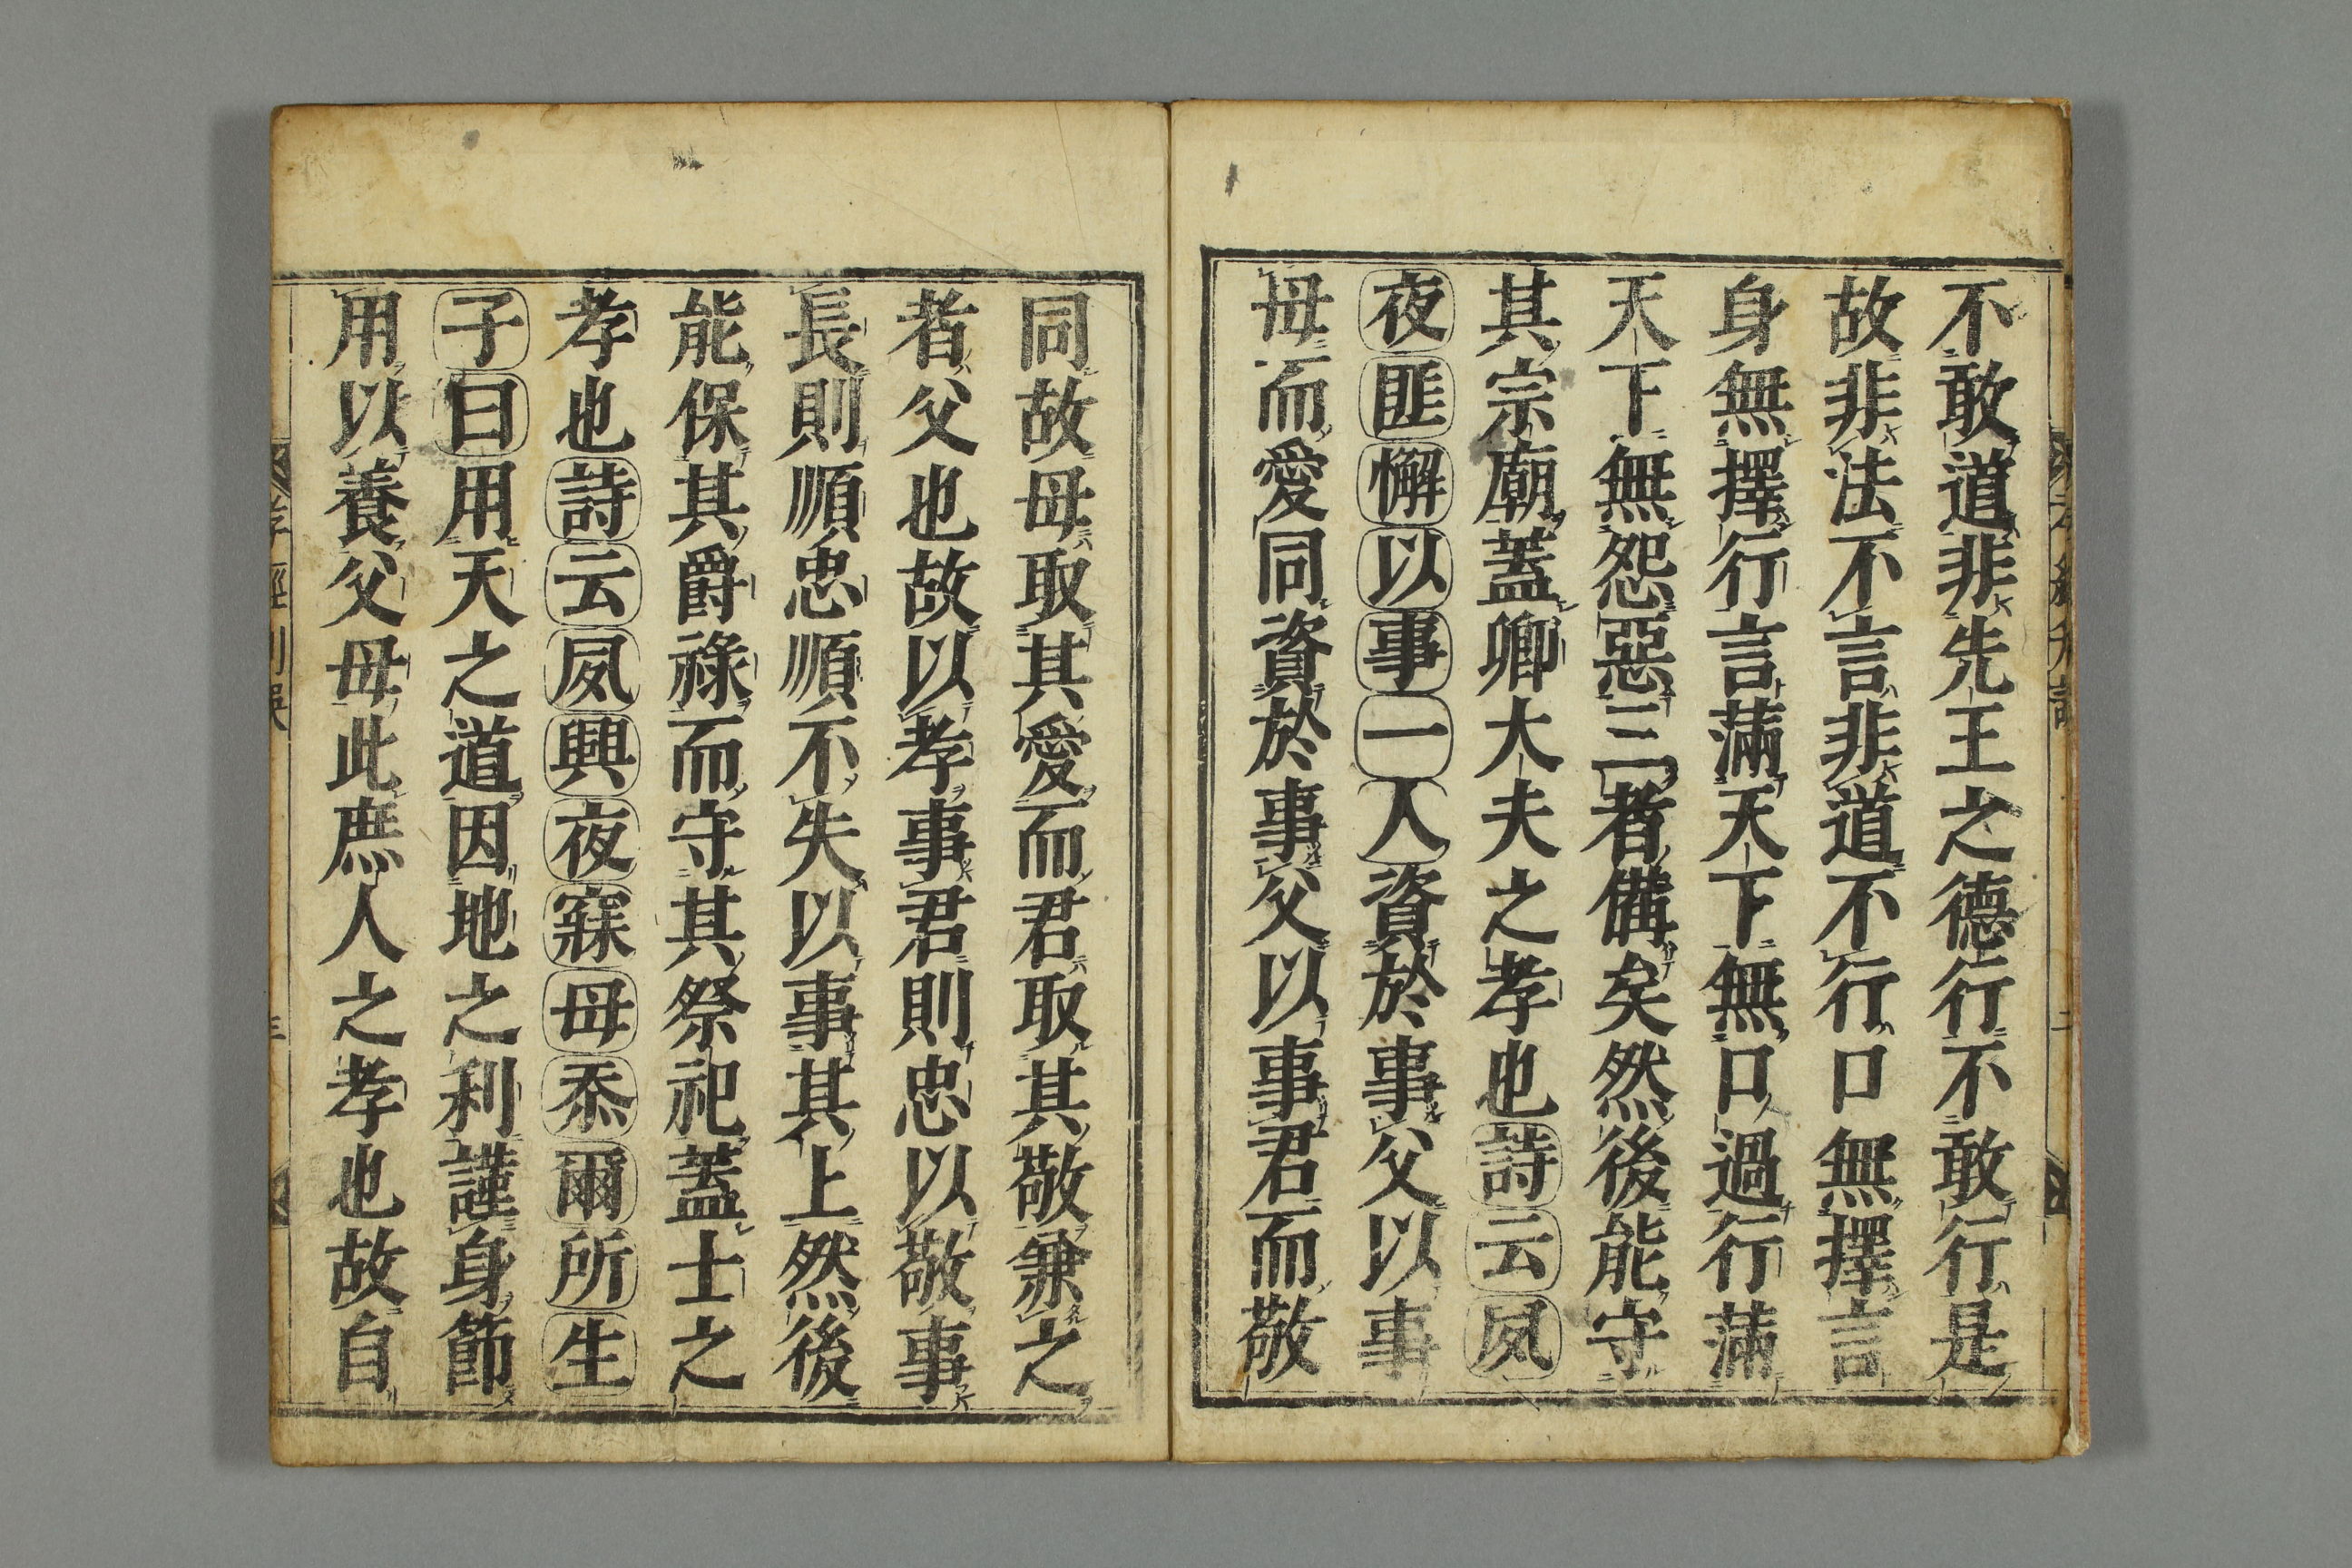 不敢道非先王之德行不敢行是
故非法不言非道不行口無擇言
身無擇行言滿天下無口過行滿
天下無怨惡三者備矣然後能守
其宗廟蓋卿大夫之孝也詩云夙
夜匪懈以事一人資於事父以事
母而愛同資於事父以事君而敬
同故母取其愛而君取其敬兼之
者父也故以孝事君則忠以敬事
長則順忠順不失以事其上然後
能保其爵祿而守其祭祀蓋士之
孝也詩云夙興夜寐毋忝爾所生
子曰用天之道因地之利謹身節
用以養父母此庶人之孝也故自